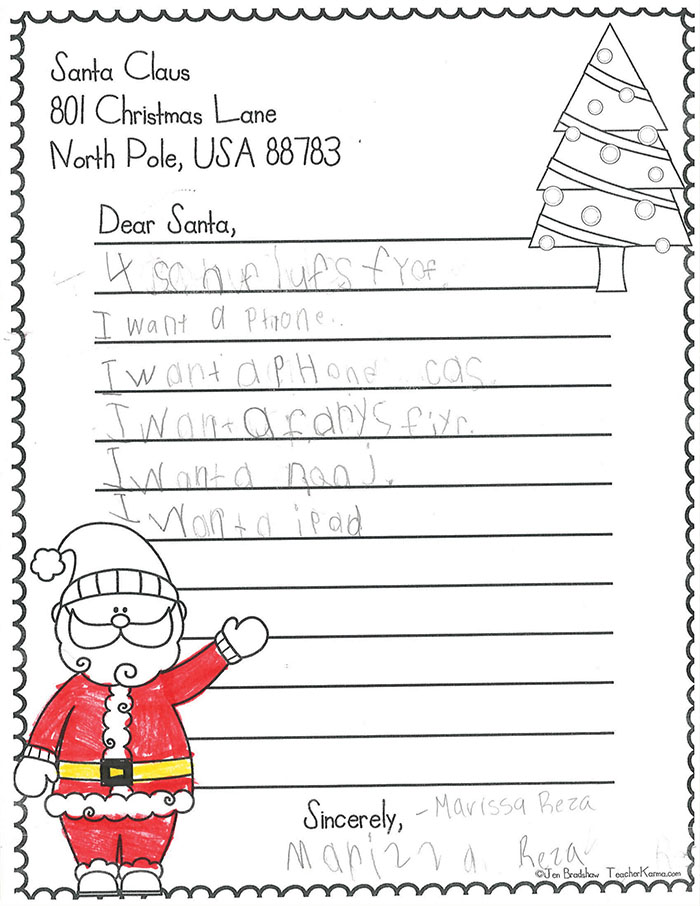 Santa Claus
801 Christmas Lane
North Pole, USA 88783
Dear Santa,
4
I want a Phone.
I want a PHone cas.
I want a
I want a
I want a ipad
Sincerely,
-Marissa Reza
Marizza Reza
©Jen Bradshaw TeacherKarma.com